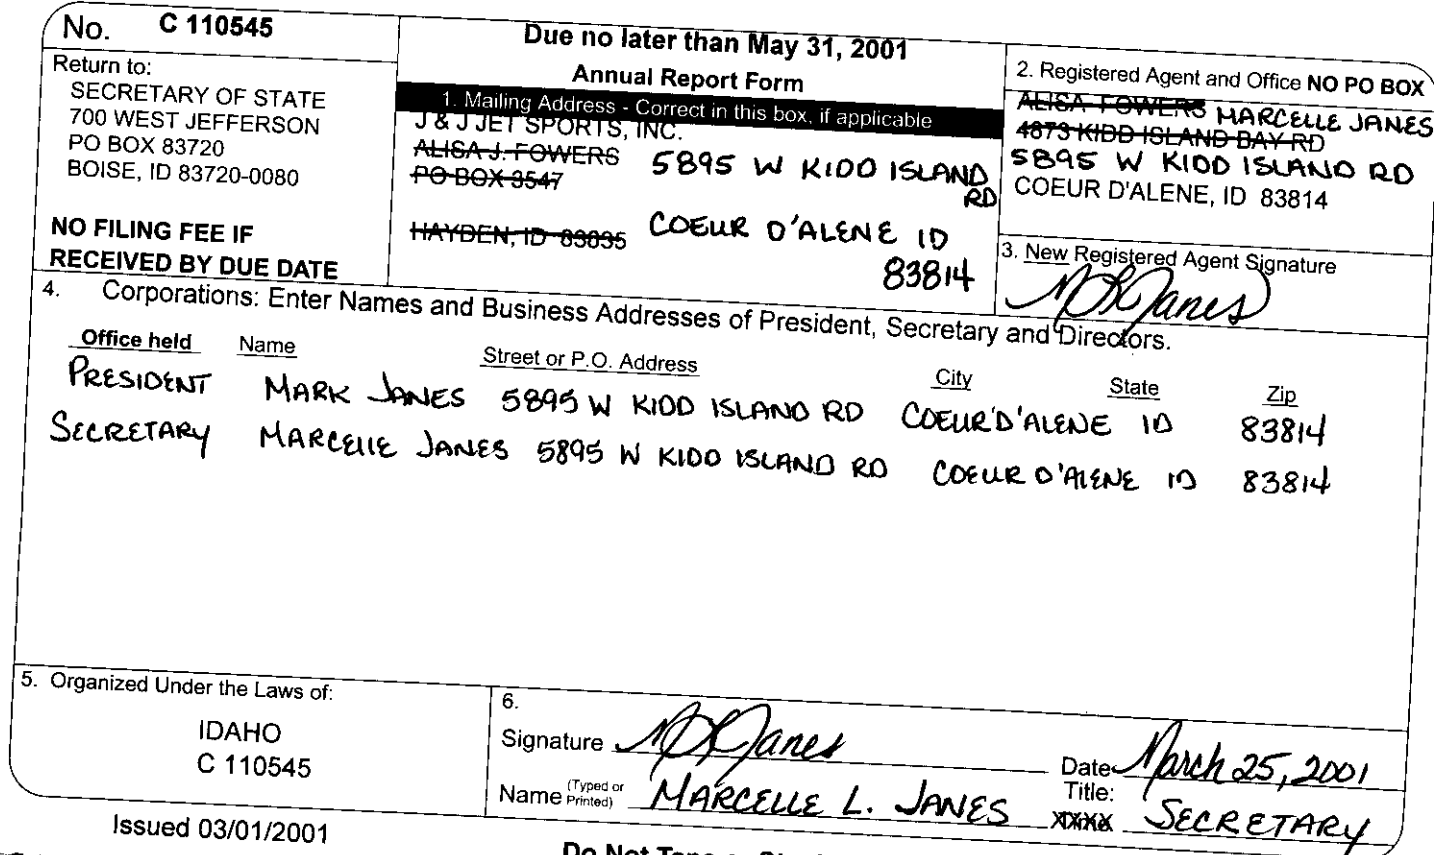 No. C 110545
Return to:
SECRETARY OF STATE
700 WEST JEFFERSON
PO BOX 83720
BOISE, ID 83720-0080
NO FILING FEE IF
RECEIVED BY DUE DATE
Due no later than May 31, 2001
Annual Report Form
1. Mailing Address - Correct in this box, if applicable
J & J JET SPORTS, INC.
ALISA J. FOWERS
PO BOX 3547
5895 W KIDD ISLAND
RD
HAYDEN, ID 83835
COEUR D'ALENE ID
83814
2. Registered Agent and Office NO PO BOX
ALISA FOWERS MARCELLE JANES
4873 KIDD ISLAND BAY RD
5895 W KIDD ISLAND RD
COEUR D'ALENE, ID 83814
3. New Registered Agent Signature
M L Janes
4. Corporations: Enter Names and Business Addresses of President, Secretary and Directors.
Office held Name Street or P.O. Address City State Zip
PRESIDENT MARK JANES 5895 W KIDD ISLAND RD COEUR'D'ALENE ID 83814
SECRETARY MARCELLE JANES 5895 W KIDD ISLAND RD COEUR D'ALENE ID 83814
5. Organized Under the Laws of:
IDAHO
C 110545
6.
Signature M L Janes Date March 25, 2001
Name (Typed or Printed) MARCELLE L. JANES Title: SECRETARY
Issued 03/01/2001
Do Not Tape